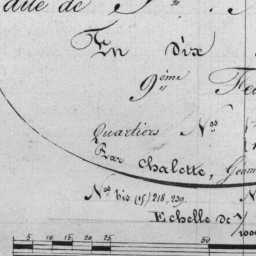 dite de
En dix
9ème Feu
Quartiers Nos
Par Chalette, Géom
Nos bis (15) 218, 239. N
Echelle de 1/
5 10 15 20 25 50